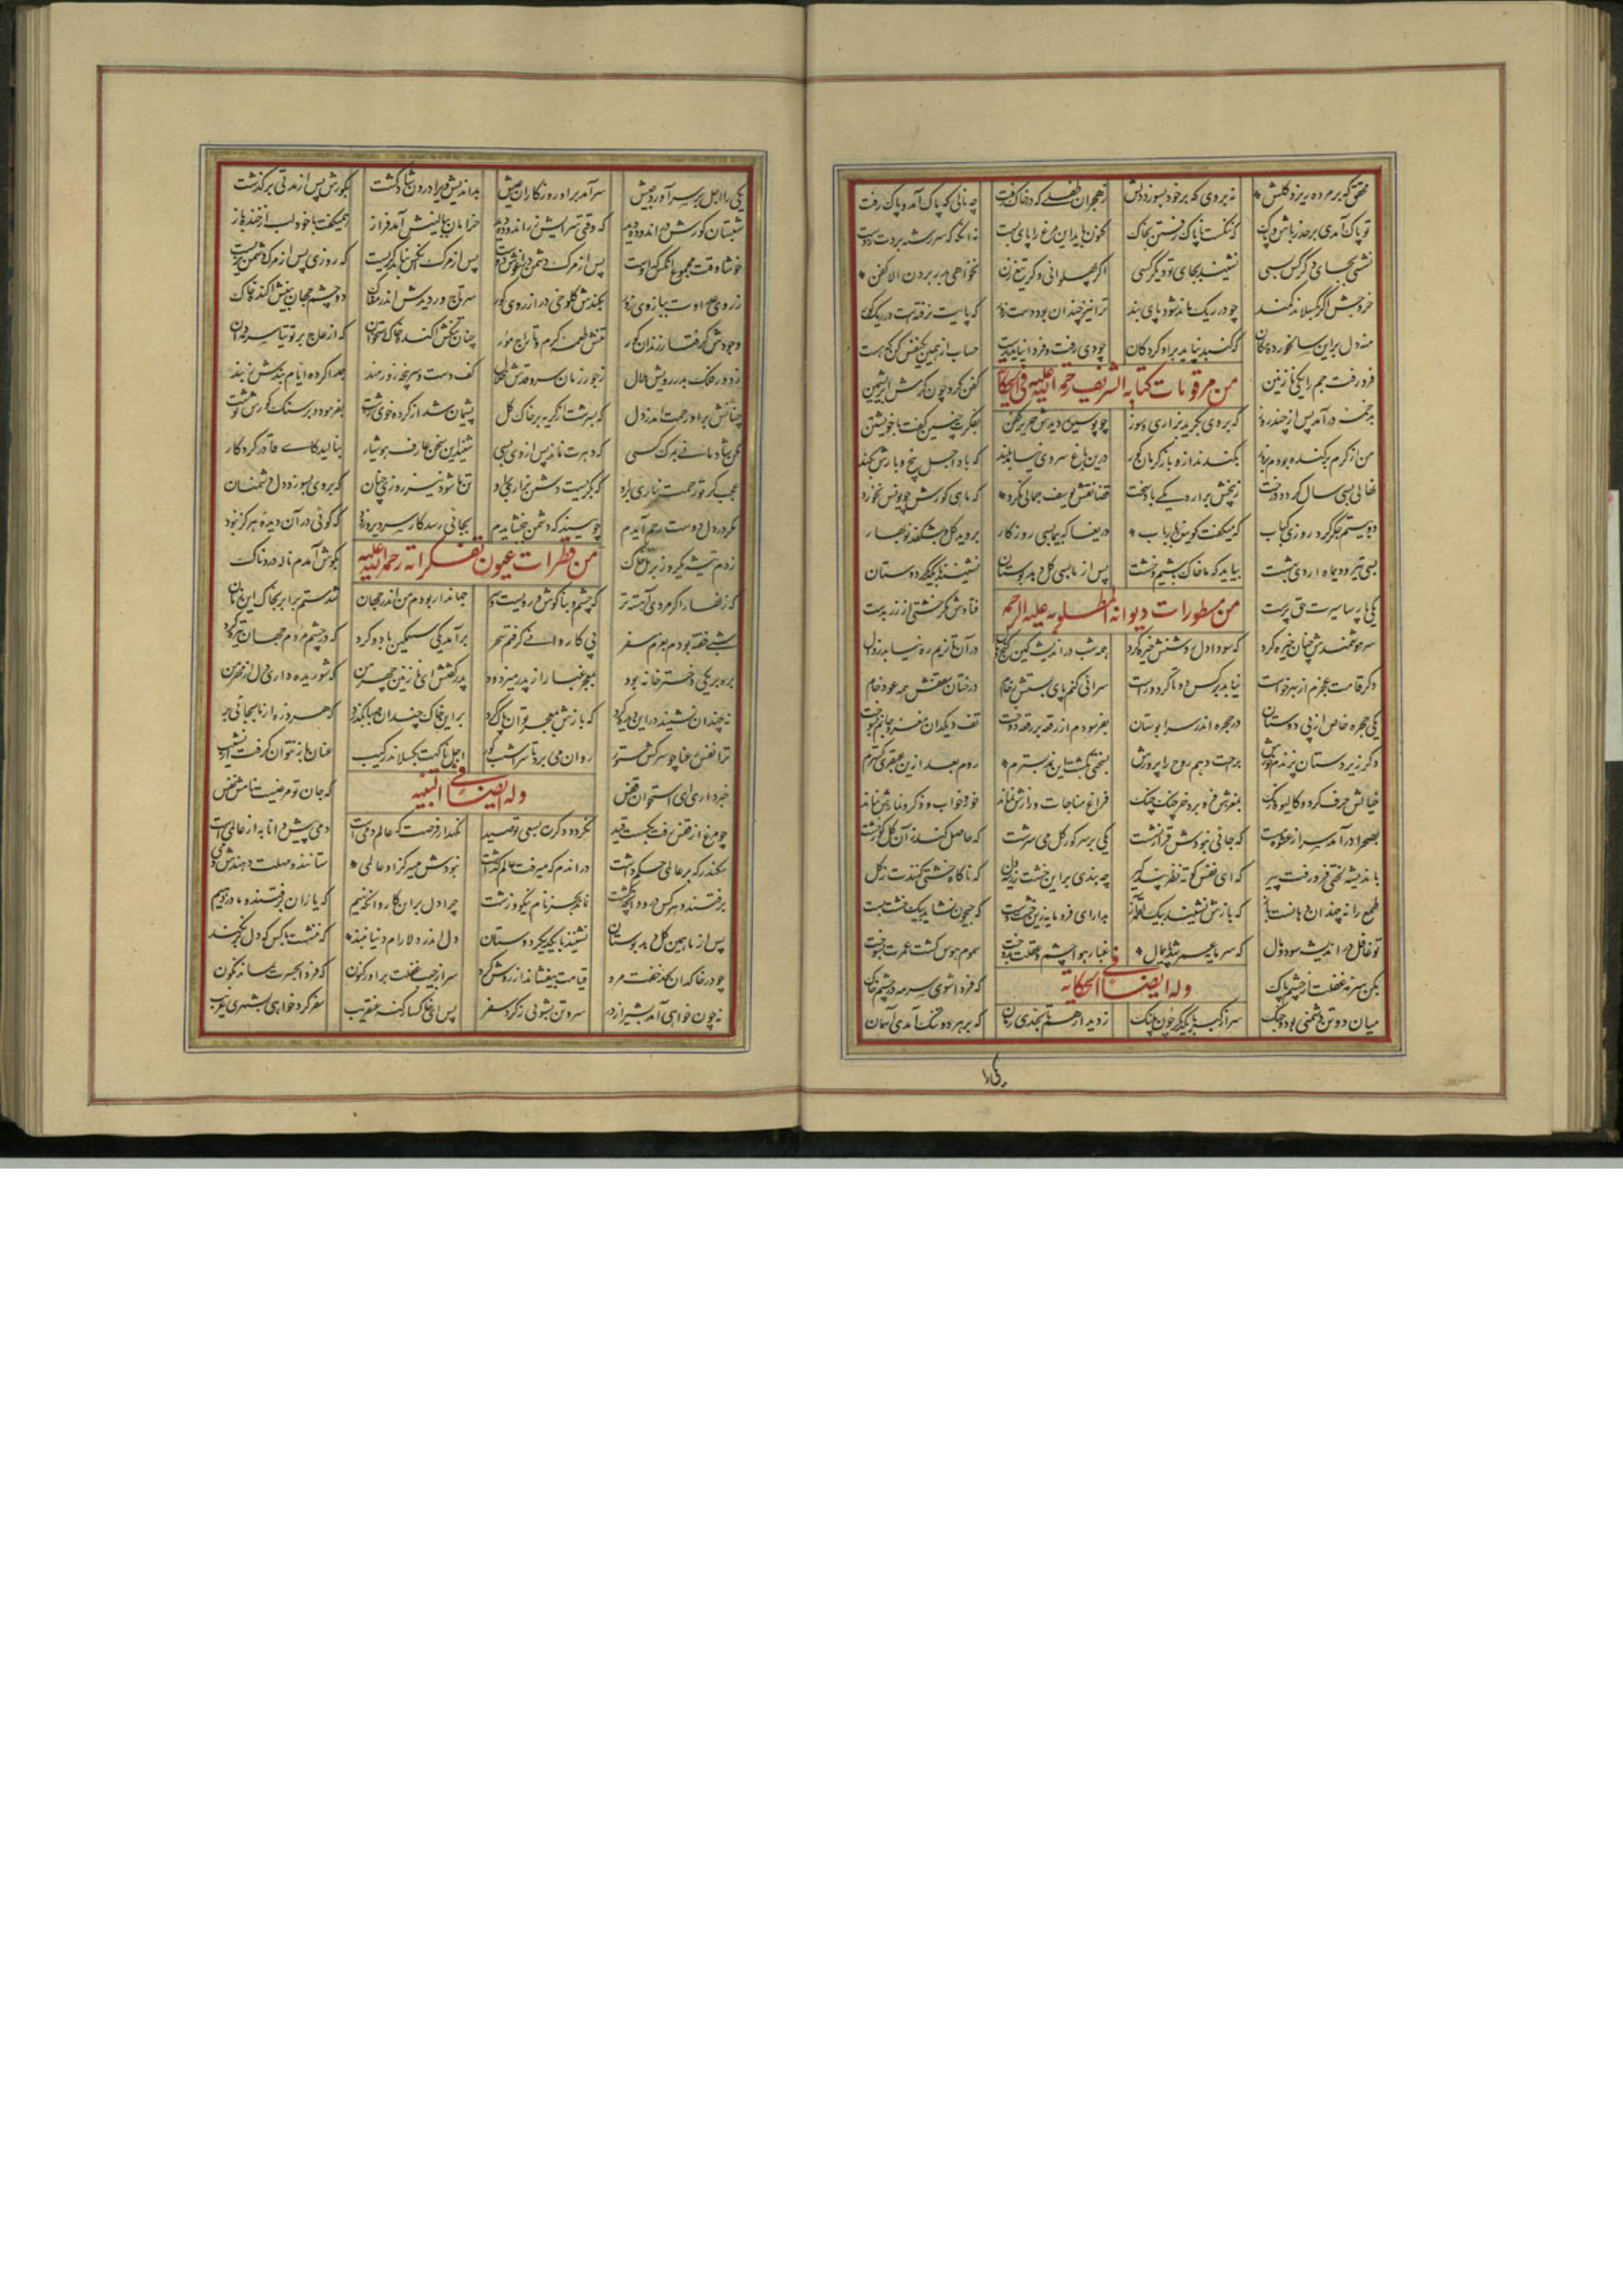 محقق که بر مرده ریزد گلش نه بروی که بر خود بسوزد دلش ز هجران طفلی که در خاک رفت چه نالی که پاک آمد و پاک رفت
تو پاک آمدی بر حذر باش و پاک که ننگست ناپاک رفتن بخاک کنون باید این مرغ را پای بست نه آنکه که سررشته بردت ز دست
نشستی بجای دگر کس بسی نشیند بجای تو دیگر کسی اگر پهلوانی و گر تیغ زن نخواهی بدر بردن الا کفن
خر وحش اگر بگسلاند کمند چو در ریگ ماند شود پای بند ترا نیز چندان بود دست زور که پایت نرفتست در ریگ گور
منه دل براین سالخورده مکان که گنبد نپاید براو گردکان چو دی رفت و فردا نیاید بدست حساب از همین یکنفس کن که هست
فرو رفت جم را یکی نازنین من مرقومات کتابه الشریف رحمة الله علیه فی الحکایة کفن کرد چون کرمش ابریشمین
بدخمه درآمد پس از چند روز که بروی بگرید بزاری و سوز چو پوسیده دیدش حریر کفن بفکرت چنین گفت با خویشتن
من از کرم برکنده بودم بزور بکندند ازو باز کرمان گور درین باغ سروی نیامد بلند که باد اجل بیخ و بارش نکند
نهالی بسی سال گردد درخت ز بیخش برآرد یکی باد سخت قضا نقش یوسف جمالی نکرد که ماهی گورش چو یونس نخورد
دو بیتم جگر کرد روزی کباب که میگفت گوینده با رباب دریغا که بی ما بسی روزگار بروید گل و بشکفد نوبهار
بسی تیر و دیماه و اردی بهشت بیاید که ما خاک باشیم و خشت پس از ما بسی گل دهد بوستان نشینند با یکدگر دوستان
یکی پارسا سیرت حق پرست من مسطورات دیوانه المطلوبه علیه الرحمه فتادش یکی خشتی از زر بدست
سر هوشمندش چنان خیره کرد که سودا دل روشنش خیره کرد همه شب در اندیشه کین گنج و مال در آن تا زیم ره نیابد زوال
دگر قامت عجزم از بهر خواست نیاید بر کس دوتا کرد و راست سرائی کنم پای بستش رخام درختان سقفش همه عود خام
یکی حجره خاص از پی دوستان در حجره اندر سرا بوستان بفرسودم از رقعه بر رقعه دوخت تف دیکدان مغز و جانم بسوخت
دگر زیردستان پزندم خورش براحت دهم روح را پرورش بسختی بکشت این نمد بسترم روم بعد ازین عبقری گسترم
خیالش خرف کرد و کالیوه رنگ بمغزش فرو برد خرچنگ چنگ فراغ مناجات و رازش نماند خور و خواب و ذکر و نمازش نماند
بصحرا درآمد سر از عشوه مست که جائی نبودش قرار نشست یکی بر سر گور گل می سرشت که حاصل کند زان گل گور خشت
باندیشه لختی فرو رفت پیر که ای نفس کوته نظر پند گیر چه بندی براین خشت زرین دلت که ناگاه خشتی کنند از گلت
طمع را نه چندان دهانست باز که بازش نشیند بیک لقمه آز بدار ای فرومایه زین خشت دست که جیحون نشاید بیک خشت بست
تو غافل در اندیشه سود و مال که سرمایه عمر شد پایمال غبار هوا چشم عقلت بدوخت سموم هوس کشت عمرت بسوخت
بکن سرمه غفلت از چشم پاک وله ایضا فی الحکایة که فردا شوی سرمه در چشم خاک
میان دو تن دشمنی بود و جنگ سر از کبر بر یکدگر چون پلنگ ز دیدار هم تا بحدی رمان که بر هر دو تنگ آمدی آسمان
یکی را اجل بر سر آورد جیش سرآمد براو روزگاران عیش بداندیش ویرا درون شاد گشت بگورش پس از مدتی برگذشت
شبستان گورش در اندوده دید که وقتی سرایش زر اندوده دید خرامان ببالینش آمد فراز همیگفت با خود لب از خنده باز
خوشا وقت مجموع آنکس که اوست پس از مرگ دشمن در آغوش دوست پس از مرگ آنکس نباید گریست که روزی پس از مرگ دشمن بزیست
ز روی عداوت ببازوی زور بکندش کلوخی در از روی گور سر تاجور دیدش اندر مغاک دو چشم جهان بینش آکنده خاک
وجودش گرفتار زندان گور تنش طعمه کرم و تاراج مور
ز دور فلک بدر رویش هلال ز جور زمان سرو قدش خلال کف دست و سرپنجه زورمند جدا کرده ایام بندش ز بند
چنانش براو رحمت آمد ز دل که بسرشت از گریه بر خاک گل پشیمان شد از کرده خوی زشت بفرمود بر سنگ گورش نوشت
مکن شادمانی بمرگ کسی که دهرت نماند پس از وی بسی شنید این سخن عارف هوشیار بنالید کای قادر کردگار
عجب گر تو رحمت نیاری براو که بگریست دشمن بزاری براو تن ما شود نیز روزی چنان که بروی بسوزد دل دشمنان
مگر در دل دوست رحم آیدم چو بیند که دشمن ببخشایدم بجائی رسد کار سر دیر و زود که گوئی در آن دیده هرگز نبود
زدم تیشه یکروز بر تل خاک من قطرات عیون تفکراته رحمة الله علیه بگوش آمدم ناله دردناک
که زنهار اگر مردی آهسته تر که چشم و بناگوش و رویست و سر
شبی خفته بودم بعزم سفر پی کاروانی گرفتم سحر برآمد یکی سهمگین باد و گرد که در چشم مردم جهان تیره کرد
بره بر یکی دختر خانه بود بمعجر غبار از پدر میزدود پدر گفتش ای نازنین چهر من که شوریده داری دل از مهر من
نه چندان نشیند در این دیده گرد که بازش بمعجر توان پاک کرد براین خاک چندان صبا بگذرد که هر ذره از ما بجائی برد
ترا نفس رعنا چو سرکش ستور روان می برد تا سراشیب گور اجل ناگهت بگسلاند رکیب عنان باز نتوان گرفت از نشیب
خبر داری ای استخوان قفس وله ایضا فی التنبیه که جان تو مرغیست نامش نفس
چو مرغ از قفس رفت و بگسست قید نگردد دگرت بسعی تو صید نگهدار فرصت که عالم دمی است دمی پیش دانا به از عالمی است
سکندر که بر عالمی حکم داشت در آندم که میرفت عالم گذاشت نبودش میسر کزو عالمی ستانند و مهلت دهندش دمی
برفتند و هر کس درود آنچه کشت نماند بجز نام نیکو و زشت چرا دل براین کاروانگه نهیم که یاران برفتند و ما در رهیم
پس از ما همین گل دهد بوستان نشینند با یکدیگر دوستان دل اندر دلارام دنیا مبند که ننشست با کس که دل برنکند
چو در خاکدان لحد خفت مرد قیامت بیفشاند از روی گرد سر از جیب غفلت برآور کنون که فردا بحسرت نماند نگون
نه چون خواهی آمد بشیراز در سر و تن بشوئی ز گرد سفر پس ای خاکسار گنه عنقریب سفر کرد خواهی بشهری غریب